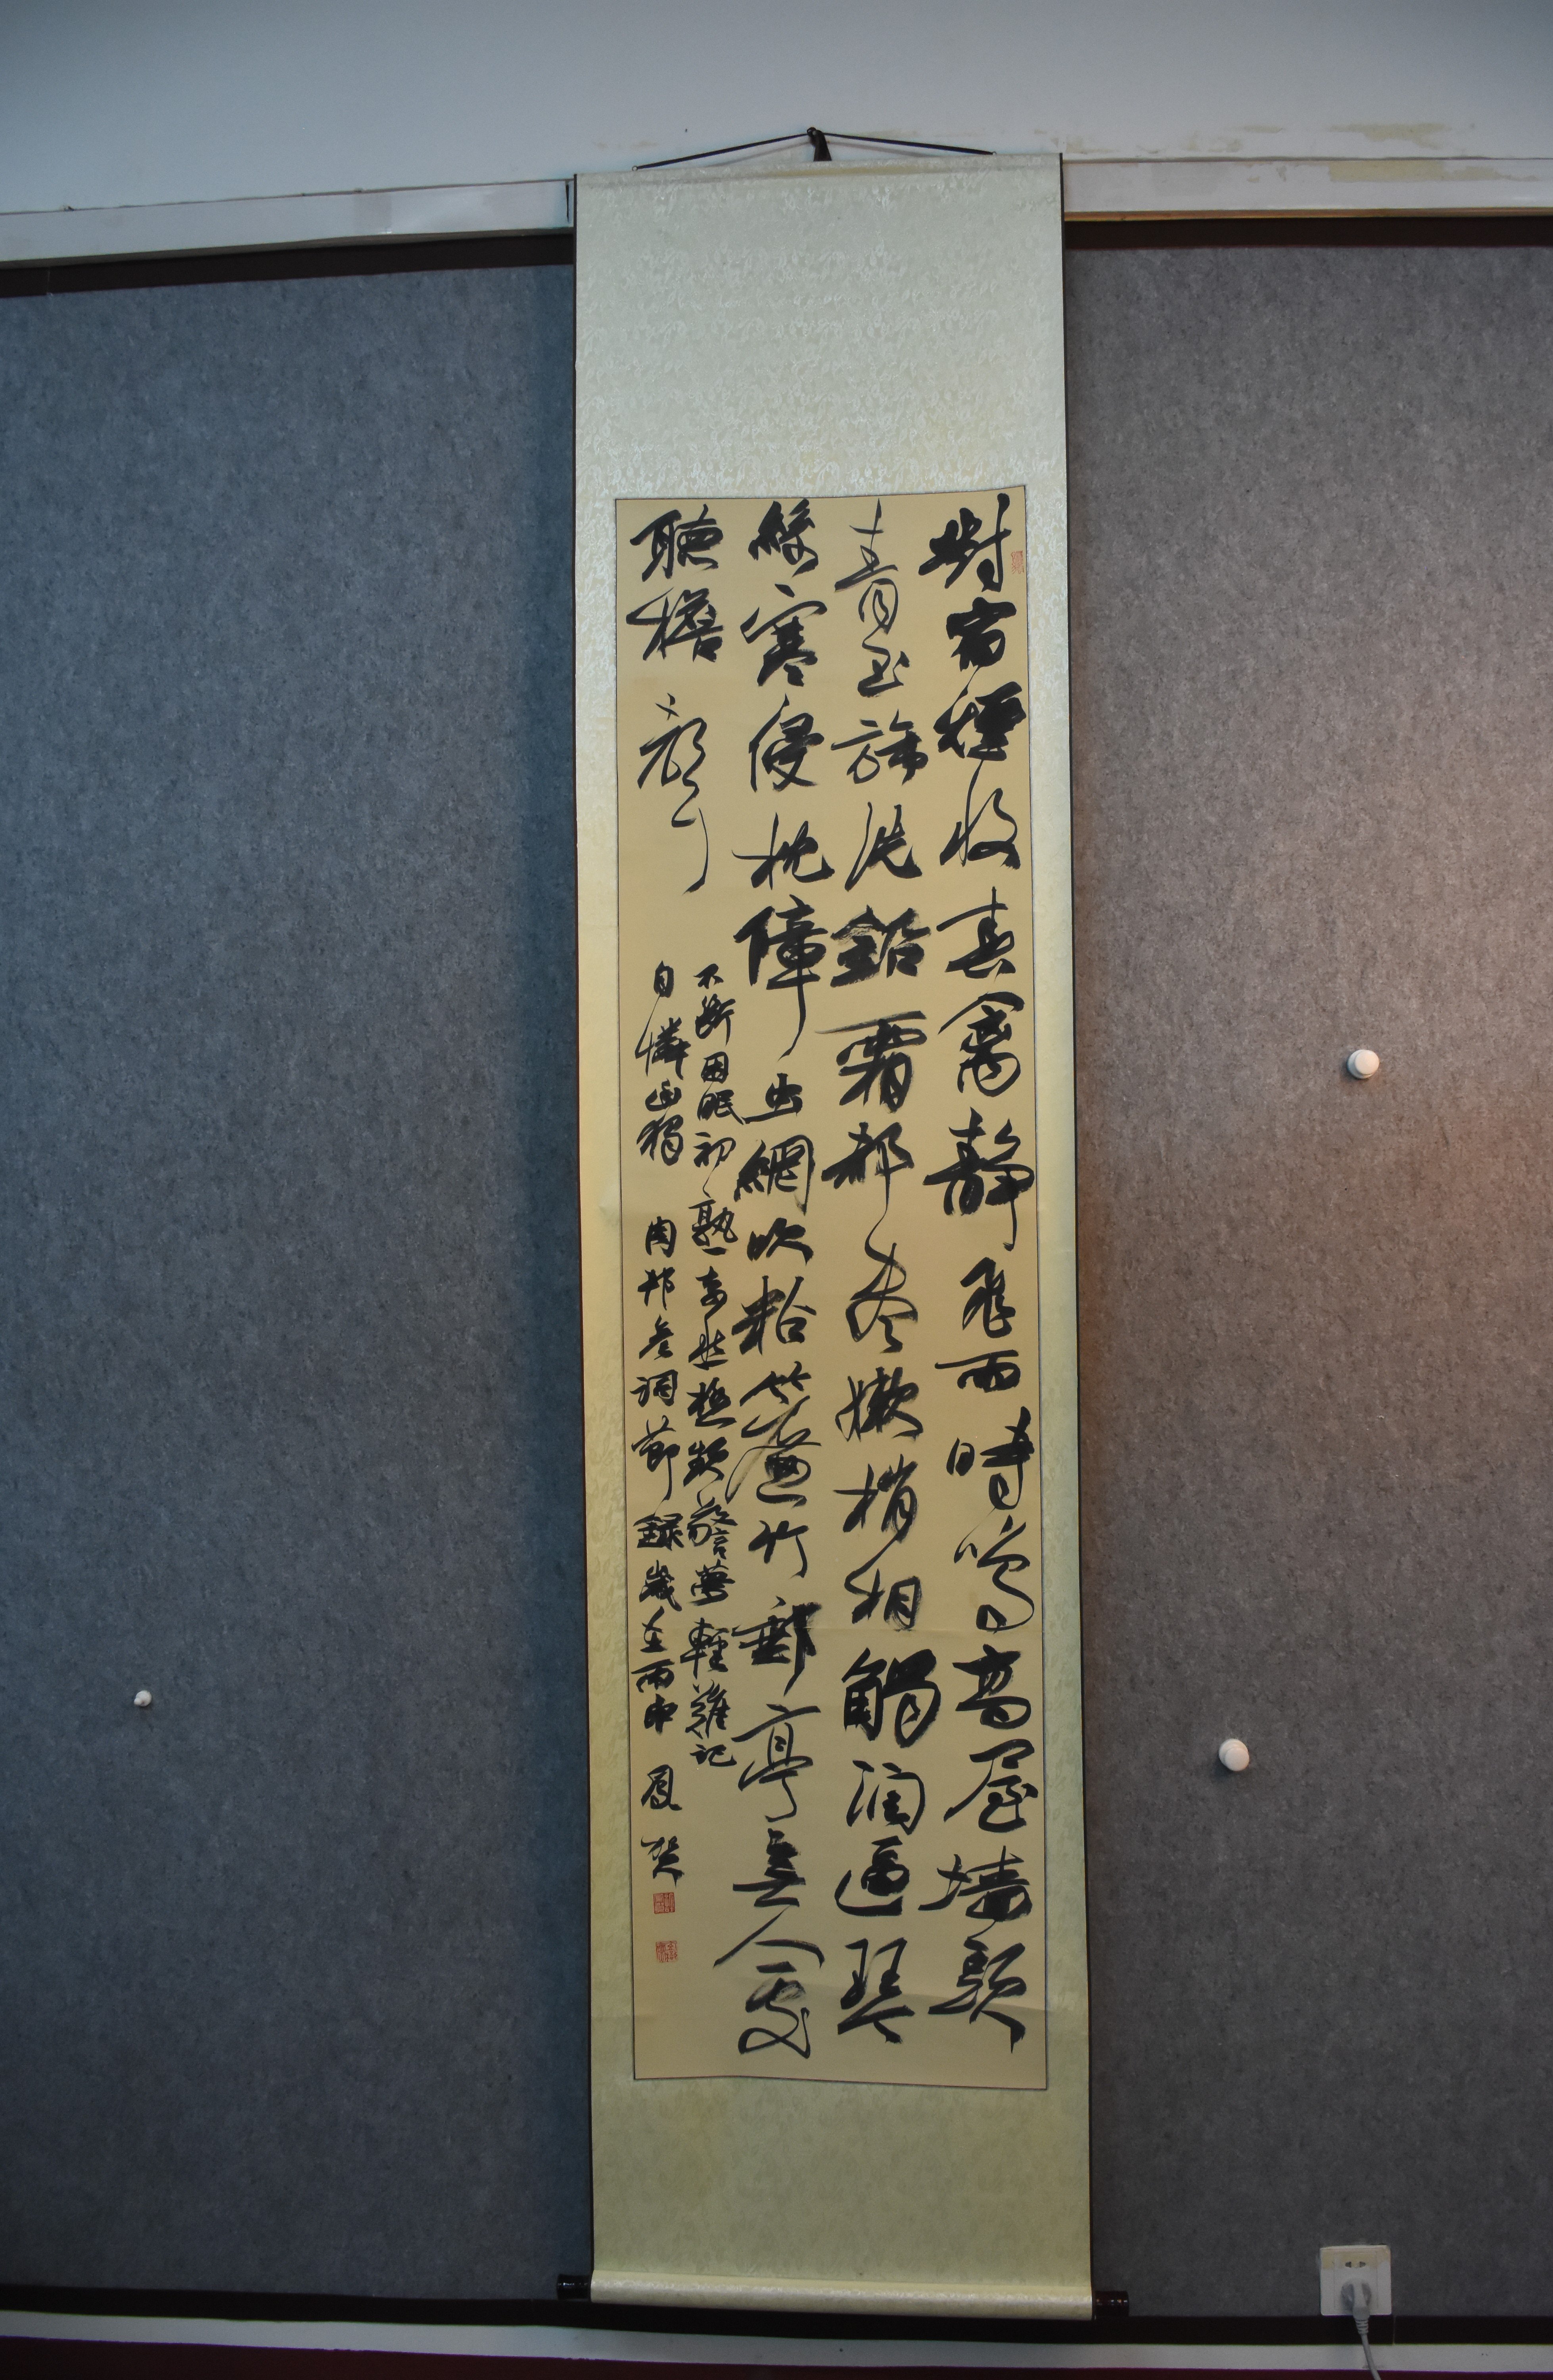 對宿煙收春禽靜飛雨時鳴高屋墙頭
青玉旆洗鉛霜都盡嫩梢相觸潤逼琴
絲寒侵枕障虫網吹粘簾竹郵亭無人處
聽檐聲
不斷困眠初熟奈愁極頻驚夢輕難記
自憐幽獨 周邦彥詞節錄歲在丙申 鳳